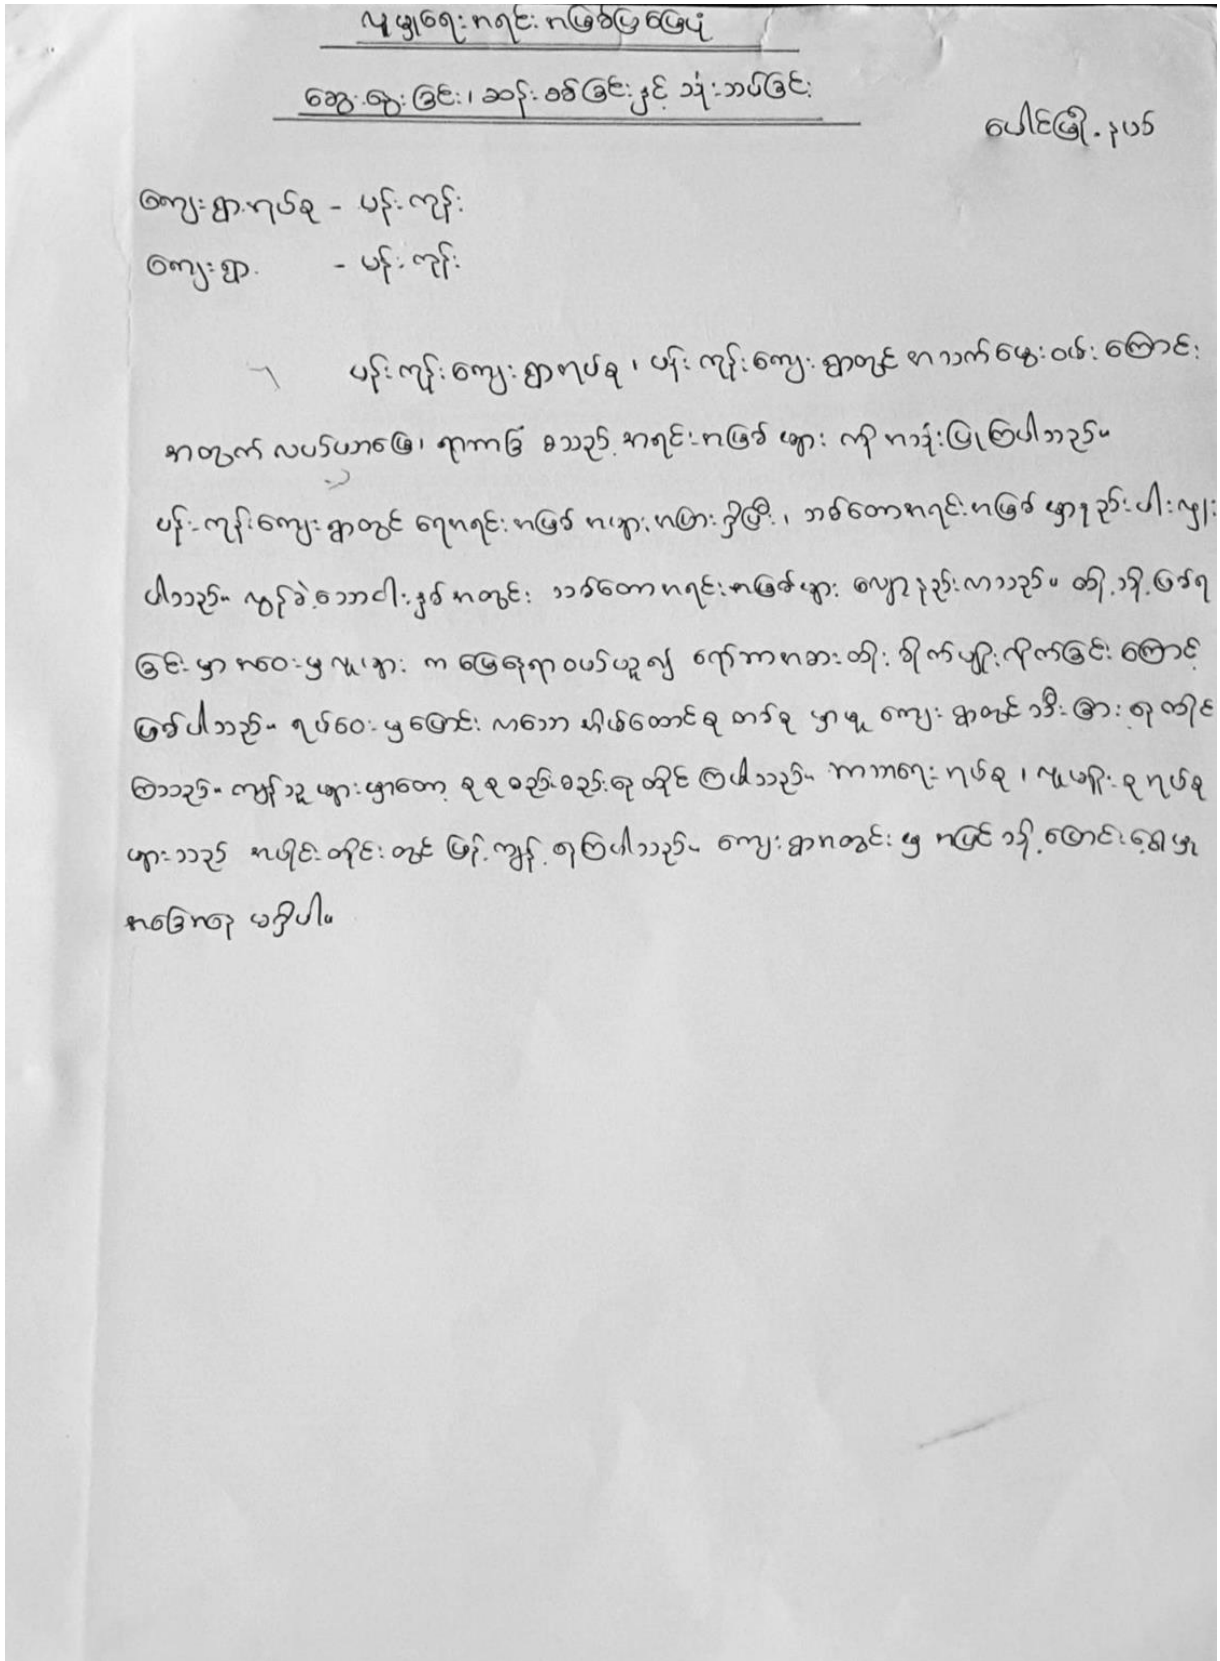 လူမှုရေးအရင်းအမြစ်ပြမြေပုံ
ဆွေးနွေးခြင်း၊ ဆန်းစစ်ခြင်းနှင့် သုံးသပ်ခြင်း
ပေါင်မြို့နယ်
ကျေးရွာအုပ်စု - ပန်းကုန်း
ကျေးရွာ - ပန်းကုန်း
ပန်းကုန်းကျေးရွာအုပ်စု၊ ပန်းကုန်းကျေးရွာတွင် အသက်မွေးဝမ်းကြောင်း
အတွက် လယ်ယာမြေ၊ ရာဘာခြံ စသည့် အရင်းအမြစ်များ ကို အသုံးပြုကြပါသည်။
ပန်းကုန်းကျေးရွာတွင် ရေအရင်းအမြစ် အများအပြားရှိပြီး၊ သစ်တောအရင်းအမြစ် မှာနည်းပါးလျှ
ပါသည်။ လွန်ခဲ့သောငါးနှစ်အတွင်း သစ်တောအရင်းအမြစ်များ လျော့နည်းလာသည်။ ထိုသို့ဖြစ်ရ
ခြင်းမှာ အဝေးမှလူများ က မြေနေရာဝယ်ယူ၍ ရော်ဘာအစားထိုး စိုက်ပျိုးလိုက်ခြင်းကြောင့်
ဖြစ်ပါသည်။ ရပ်ဝေးမှပြောင်းလာသော အိမ်ထောင်စုတစ်စုမှာမူ ကျေးရွာတွင် သီးခြားနေထိုင်
ကြသည်။ ကျန်သူများမှာတော့ စုစုစည်းစည်းနေထိုင်ကြပါသည်။ ဘာသာရေးအုပ်စု၊ လူမျိုးစုအုပ်စု
များသည် အပိုင်းတိုင်းတွင် ပြန့်ကျဲနေကြပါသည်။ ကျေးရွာအတွင်းမှ အပြင်သို့ပြောင်းရွှေ့မှု
အခြေအနေ မရှိပါ။